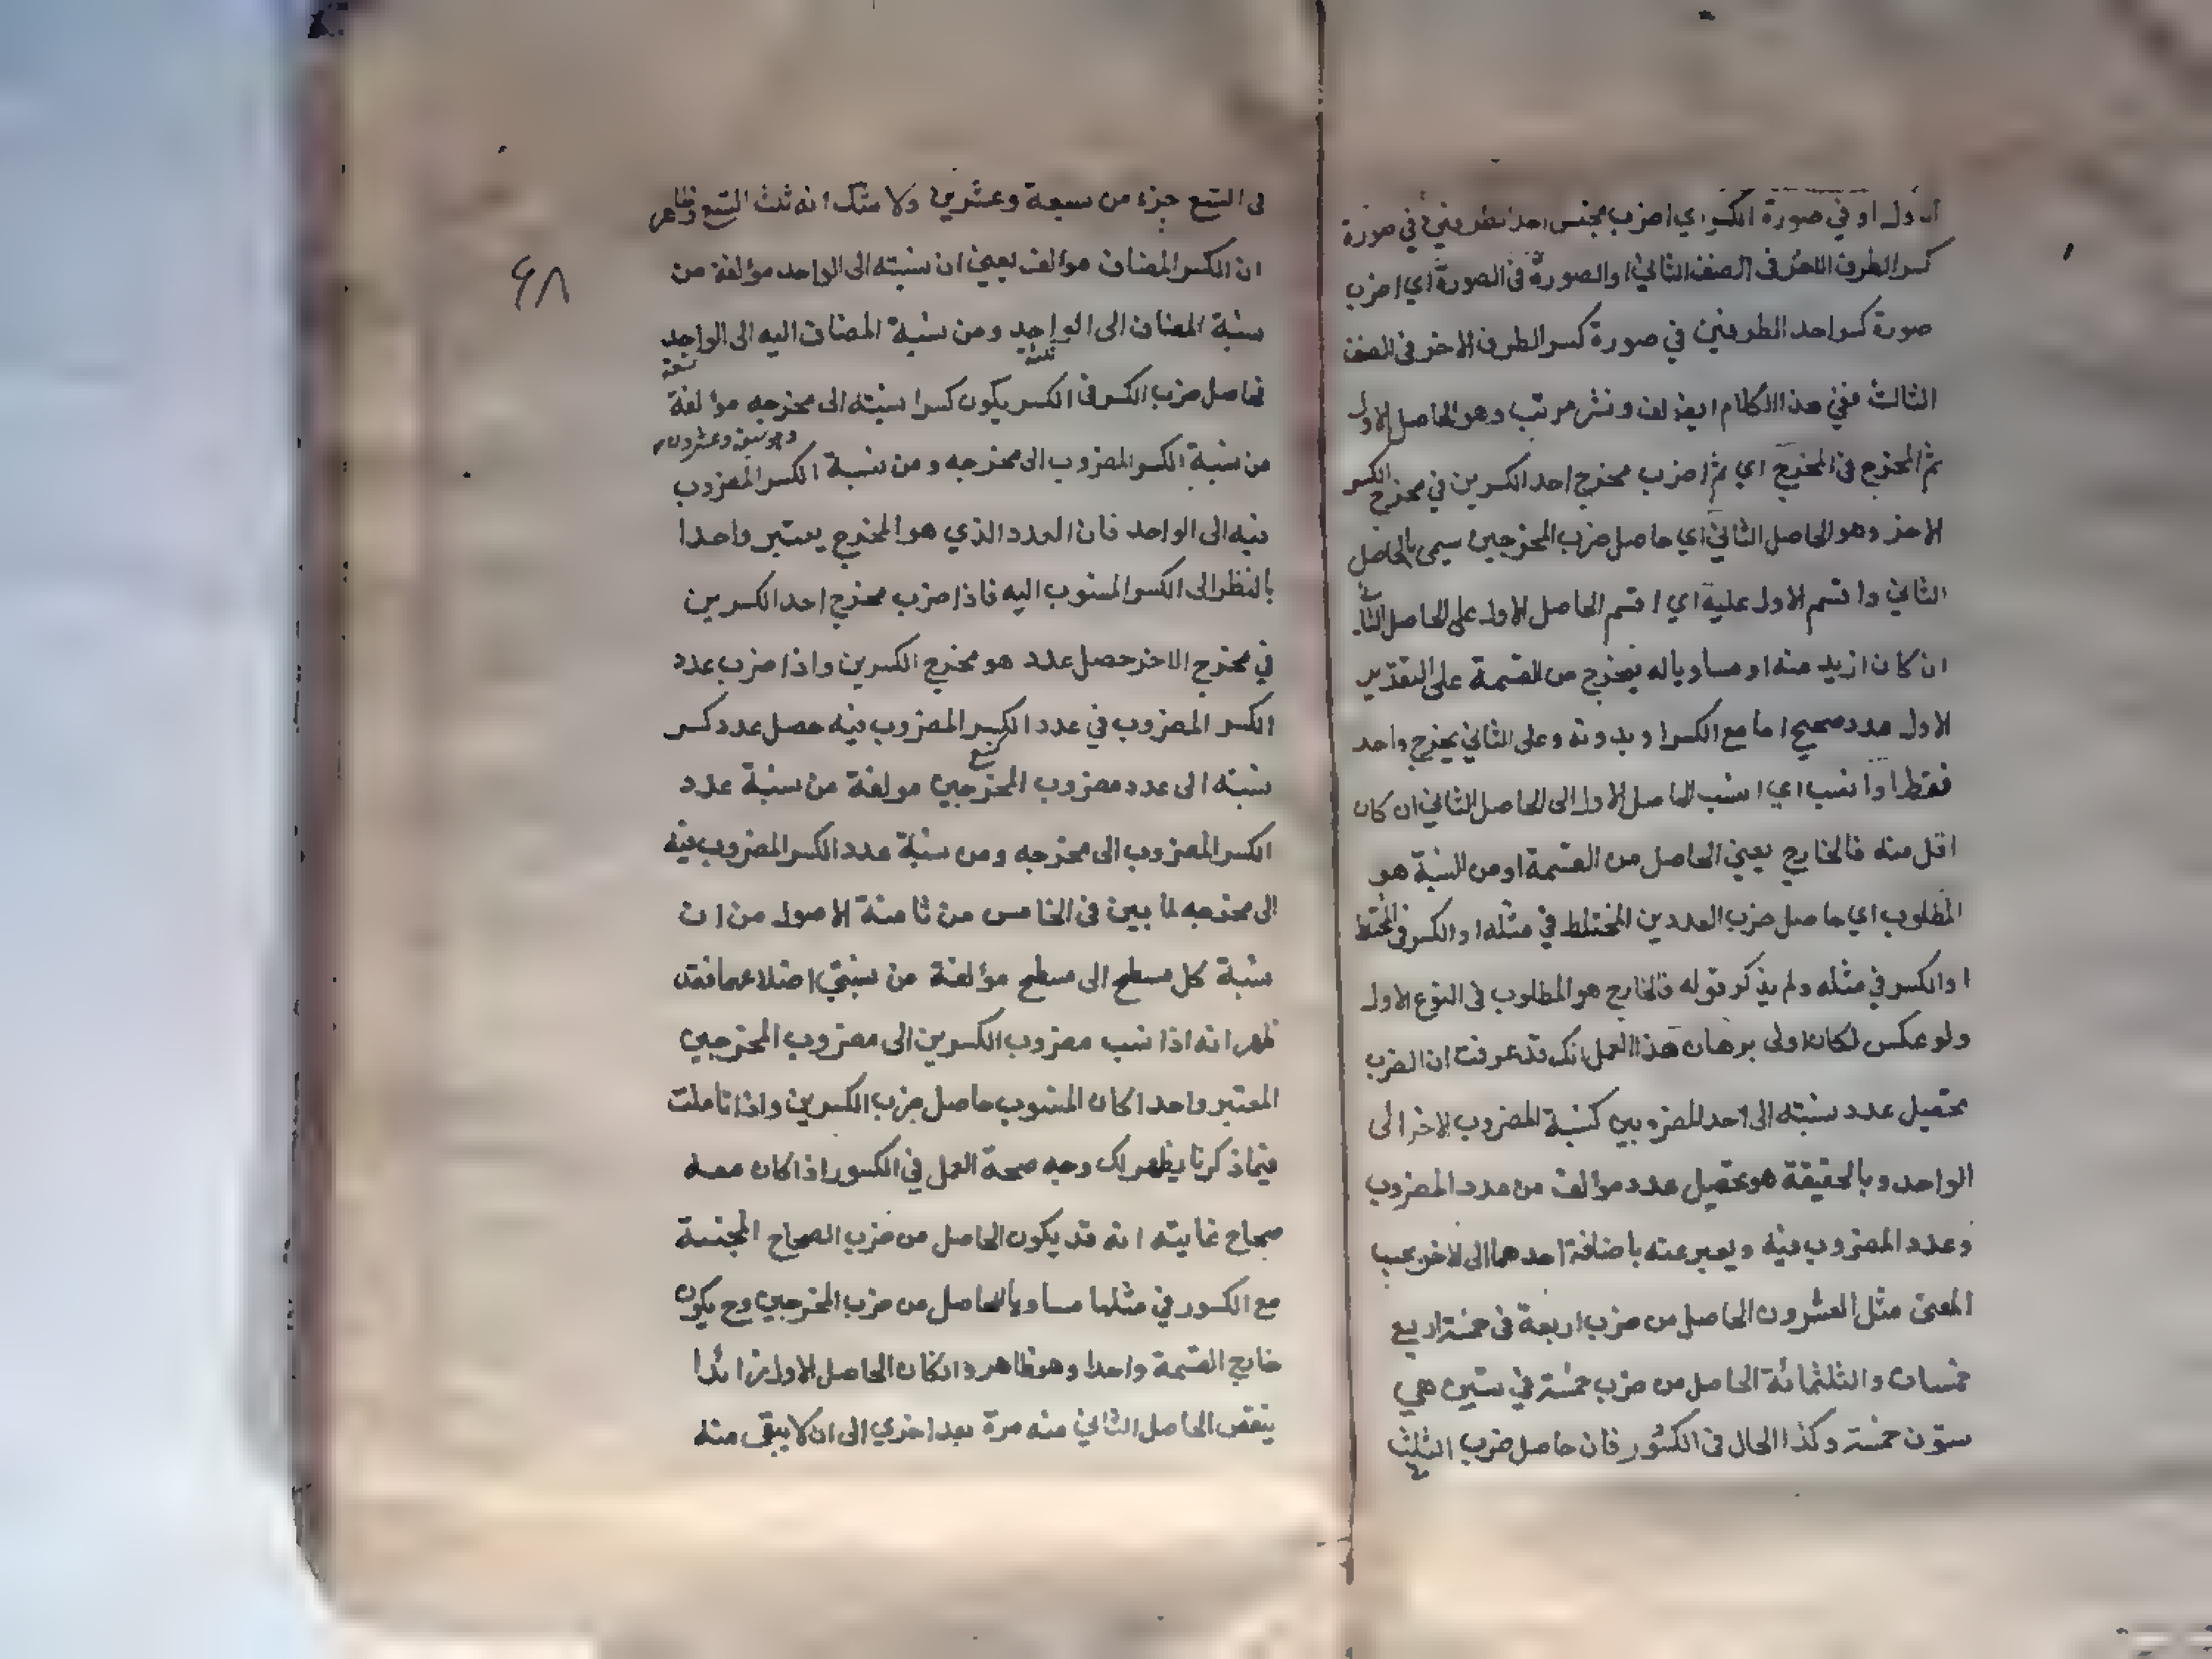 الاول او في صورة الكسر اي اضرب مجنس احد الطرفين في صورة
كسر الطرف الاخر في الصنف الثاني او الصورة في الصورة اي اضرب
صورة كسر احد الطرفين في صورة كسر الطرف الاخر في الصنف
الثالث ففي هذا الكلام ايضا لف ونشر مرتب وهو الحاصل الاول
ثم المخرج في المخرج اي ثم اضرب مخرج احد الكسرين في مخرج الكسر
الاخر وهو الحاصل الثاني اي حاصل ضرب المخرجين سمي بالحاصل
الثاني واقسم الاول عليه اي اقسم الحاصل الاول على الحاصل الثاني
ان كان ازيد منه او مساويا له يخرج من القسمة على التقدير
الاول عدد صحيح اما مع الكسر او بدونه وعلى الثاني يخرج واحد
فقط او انسب اي انسب الحاصل الاول الى الحاصل الثاني ان كان
اقل منه فالخارج يعني الحاصل من القسمة او من النسبة هو
المطلوب اي حاصل ضرب العددين المختلط في مثله او الكسر في المختلط
او الكسر في مثله ولم يذكر قوله فالخارج هو المطلوب في النوع الاول
ولو عكس لكان اولى برهان هذا العمل انك قد عرفت ان الضرب
تحصيل عدد نسبته الى احد المضروبين كنسبة المضروب الاخر الى
الواحد وبالحقيقة هو تحصيل عدد مؤالف من عدد المضروب
وعدد المضروب فيه ويعبر عنه باضافة احدهما الى الاخر بحسب
المعنى مثل العشرون الحاصل من ضرب اربعة في خمسة اربع
خمسات والثلثمائة الحاصل من ضرب خمسة في ستين هي
ستون خمسة وكذا الحال في الكسور فان حاصل ضرب الثلث
في التسع جزء من سبعة وعشرين ولا شك انه ثلث التسع وظاهر
ان الكسر المضاف مؤالف يعني ان نسبته الى الواحد مؤلفة من
نسبة المضاف الى الواحد ومن نسبة المضاف اليه الى الواحد
ثلثة تسعة
فحاصل ضرب الكسر في الكسر يكون كسرا نسبته الى مخرجه مؤلفة
وهو سبعة وعشرون
من نسبة الكسر المضروب الى مخرجه ومن نسبة الكسر المضروب
فيه الى الواحد فان العدد الذي هو المخرج يعتبر واحدا
بالنظر الى الكسر المنسوب اليه فاذا ضرب مخرج احد الكسرين
في مخرج الاخر حصل عدد هو مخرج الكسرين واذا ضرب عدد
الكسر المضروب في عدد الكسر المضروب فيه حصل عدد كسر
نسبته الى عدد مضروب المخرجين مولفة من نسبة عدد
الكسر المضروب الى مخرجه ومن نسبة عدد الكسر المضروب فيه
الى مخرجه لما بين في الخامس من ثامنة الاصول من ان
نسبة كل مسطح الى مسطح مؤلفة من نسبتي اضلاعهما فقد
ظهر انه اذا نسب مضروب الكسرين الى مضروب المخرجين
المعتبر واحدا كان المنسوب حاصل ضرب الكسرين واذا تاملت
فيما ذكرنا يظهر لك وجه صحة العمل في الكسور اذا كان معه
صحاح غايته انه قد يكون الحاصل من ضرب الصحاح المجنسة
مع الكسور في مثلها مساويا للحاصل من ضرب المخرجين وح يكون
خارج القسمة واحدا وهو ظاهر وان كان الحاصل الاول زائدا
ينقص الحاصل الثاني منه مرة بعد اخرى الى ان لا يبقى منه
٤٨